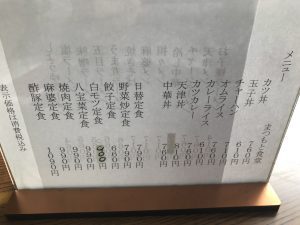 メニュー
まつもと食堂
カツ丼 760円
玉子丼 610円
チャーハン 610円
オムライス 760円
カレーライス 610円
カツカレー 760円
天津丼 810円
中華丼 760円
日替定食 790円
野菜炒め定食 790円
餃子定食 660円
白モツ定食
八宝菜定食 990円
焼肉定食 990円
麻婆定食 990円
酢豚定食 1090円
表示価格は消費税込み